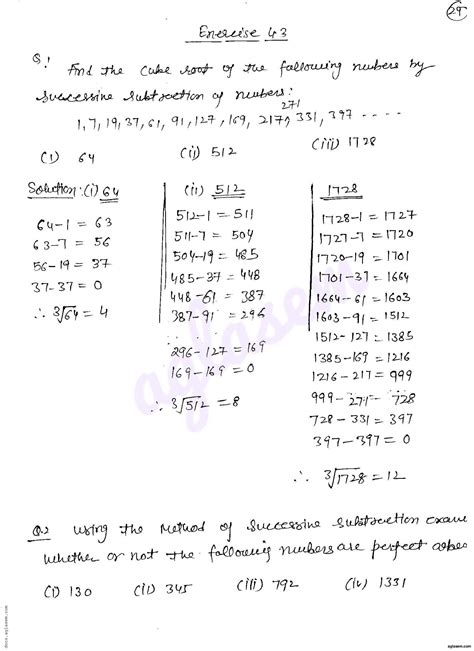 29
Enercise 4.3
Q.1 Find the Cube root of the following nubers by
successine subtraction of numbers:
271
1, 7, 19, 37, 61, 91, 127, 169, 217, 331, 397 ----
(i) 64 (ii) 512 (iii) 1728
Solution: (i) 64
64-1 = 63
63-7 = 56
56-19 = 37
37-37 = 0
∴ 3√64 = 4
(ii) 512
512-1 = 511
511-7 = 504
504-19 = 485
485-37 = 448
448-61 = 387
387-91 = 296
296-127 = 169
169-169 = 0
∴ 3√512 = 8
1728
1728-1 = 1727
1727-7 = 1720
1720-19 = 1701
1701-37 = 1664
1664-61 = 1603
1603-91 = 1512
1512-127 = 1385
1385-169 = 1216
1216-217 = 999
999-271 = 728
728-331 = 397
397-397 = 0
∴ 3√1728 = 12
Q.2 Using the Method of Successine Subtraction exame
whether or not the following nubers are perfect
(i) 130 (ii) 345 (iii) 792 (iv) 1331
aglasem
docs.aglasem.com
aglasem.com